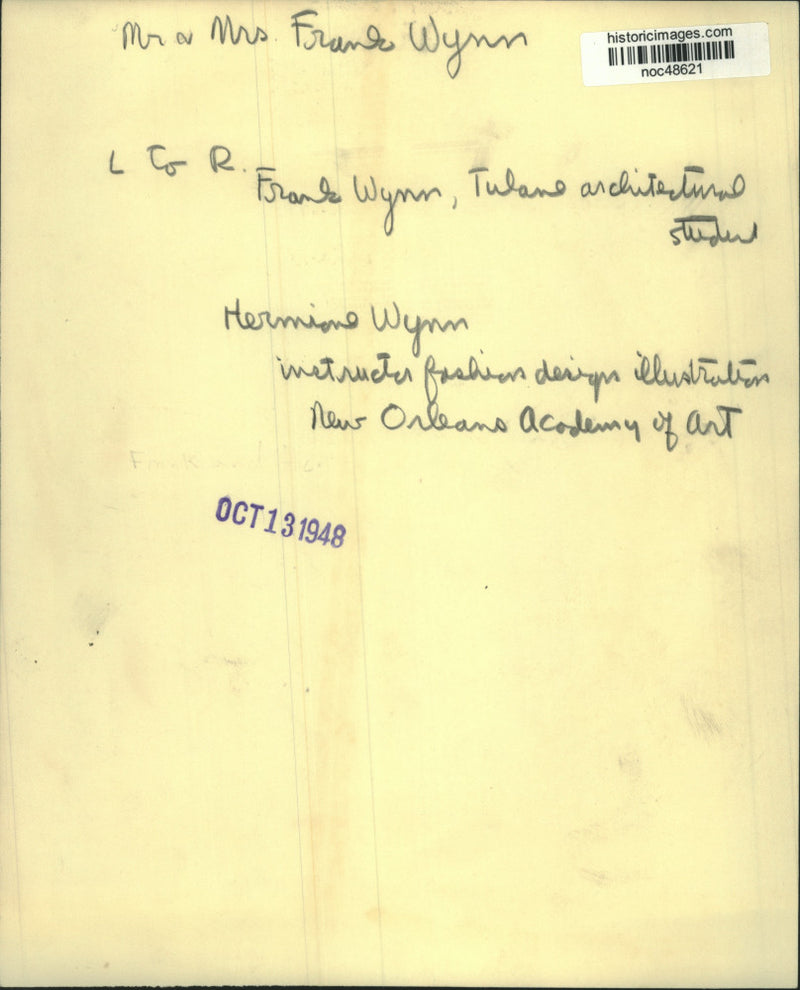 historicimages.com
noc48621
Mr & Mrs. Frank Wynn
L To R.
Frank Wynn, Tulane architectural
student
Hermione Wynn
instructor fashion design illustration
New Orleans Academy of Art
Frank and
OCT 13 1948